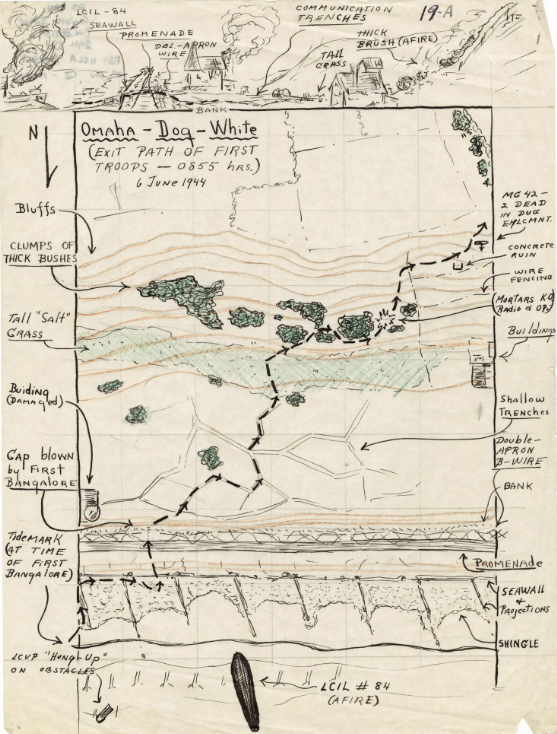 LCIL - 84
SEAWALL
PROMENADE
DBL-APRON
WIRE
COMMUNICATION
TRENCHES
19-A
TALL
GRASS
THICK
BRUSH (AFIRE)
BANK
N
OMAHA - DOG - WHITE
(EXIT PATH OF FIRST
TROOPS - 0855 hrs.)
6 JUNE 1944
Bluffs
CLUMPS OF
THICK BUSHES
Tall "Salt"
GRASS
Buiding
(DAMAGED)
GAP blown
by FIRST
BANGALORE
TIDEMARK
(AT TIME
OF FIRST
BANGALORE)
LCVP "Hung-Up"
ON OBSTACLES
MG 42 -
2 DEAD
IN DUG
EMLCMNT.
CONCRETE
RUIN
WIRE
FENCING
(MORTARS KO
Radio & OP)
Buildings
Shallow
TRENCHES
DOUBLE-
APRON
B-WIRE
BANK
PROMENADE
SEAWALL
&
PROJECTIONS
SHINGLE
LCIL # 84
(AFIRE)